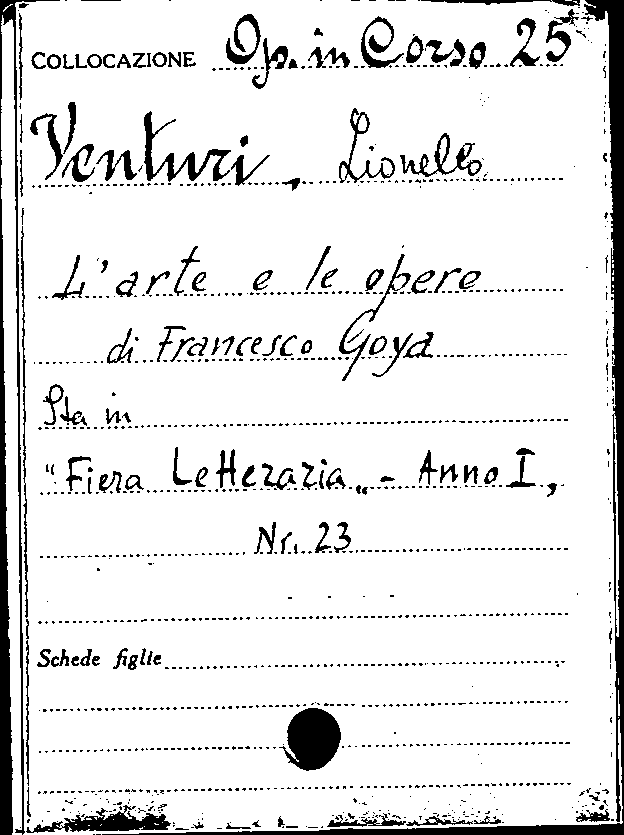 COLLOCAZIONE Op. in Corso 25
Venturi, Lionello
L'arte e le opere
di Francesco Goya
Sta in
"Fiera Letteraria" - Anno I,
Nr. 23
Schede figlie